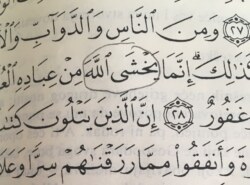 ﴿٢٧﴾ وَمِنَ النَّاسِ وَالدَّوَابِّ
كَذَٰلِكَ ۗ إِنَّمَا يَخْشَى اللَّهَ مِنْ عِبَادِهِ
غَفُورٌ ﴿٢٨﴾ إِنَّ الَّذِينَ يَتْلُونَ
وَأَنفَقُوا مِمَّا رَزَقْنَاهُمْ سِرًّا